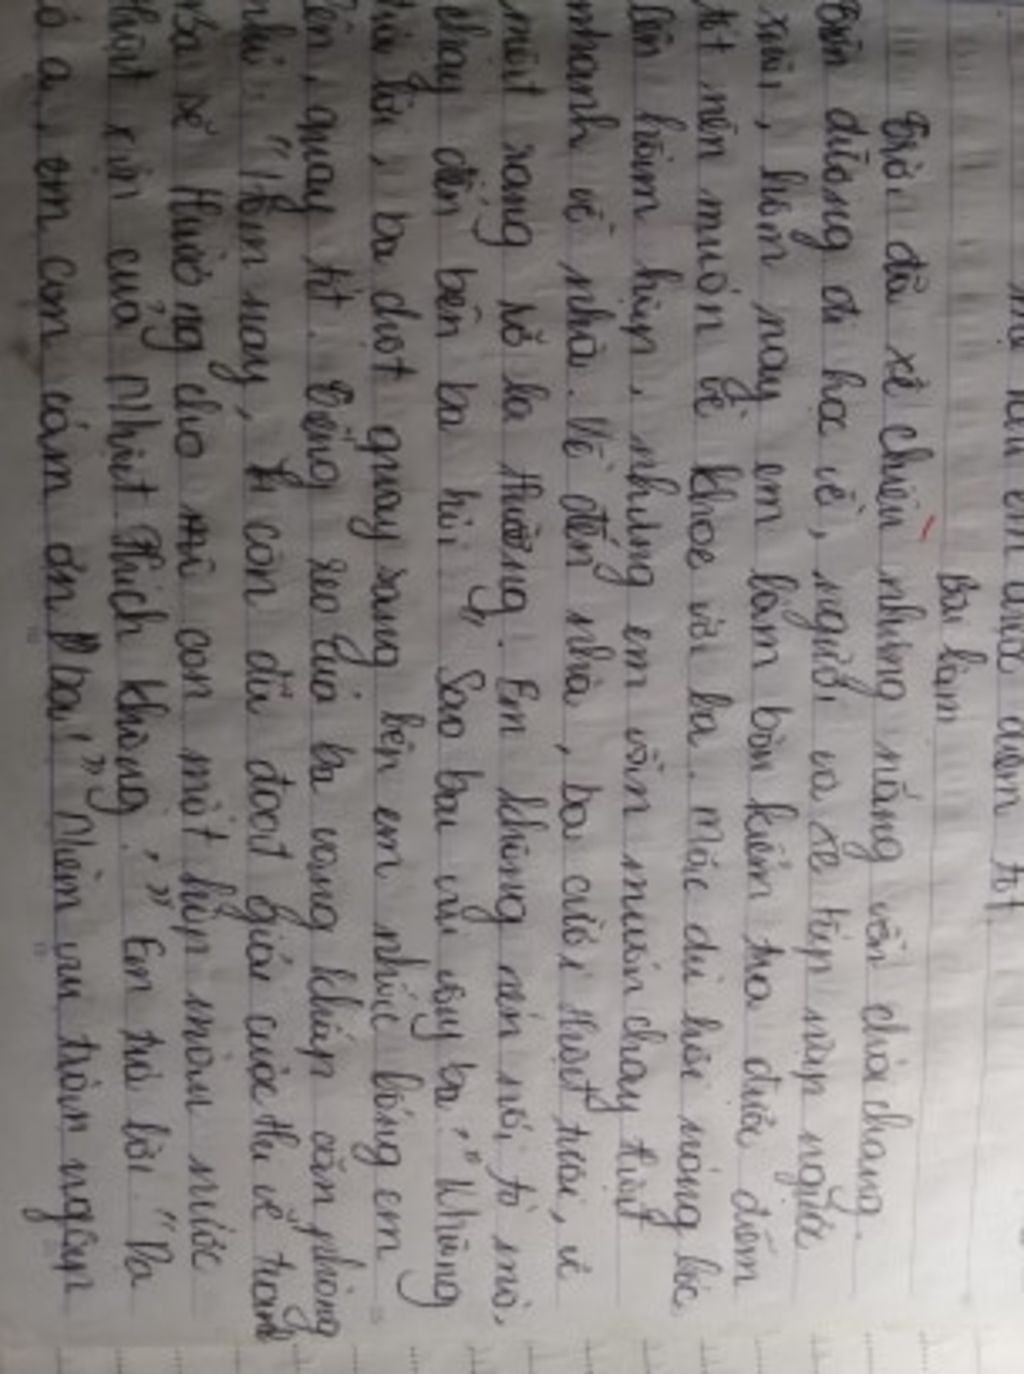 em được điểm tốt
Bài làm
Trời đã xế chiều nhưng nắng vẫn chói chang.
Trên đường đi học về, người và xe tấp nập ngược
xuôi, hôm nay em làm bài kiểm tra được điểm
tốt nên muốn về khoe với ba. Mặc dù hơi nóng bốc
lên hầm hập, nhưng em vẫn muốn chạy thật
nhanh về nhà. Về đến nhà, ba cười thật tươi, vẻ
mặt rạng rỡ lạ thường. Em không nén nổi tò mò,
chạy đến bên ba hỏi "Sao ba vui vậy ba," Không
trả lời, ba chợt quay sang bên em nhấc bổng em
lên, quay tít. Tiếng reo của ba vang khắp căn phòng
nhỏ: "Hôm nay, Ti con đã đoạt giải cuộc thi vẽ tranh
Ba sẽ thưởng cho con một hộp màu nước
thật xịn của Nhật thích không," Em trả lời "Dạ
có ạ, em con cám ơn ba!" Niềm vui tràn ngập